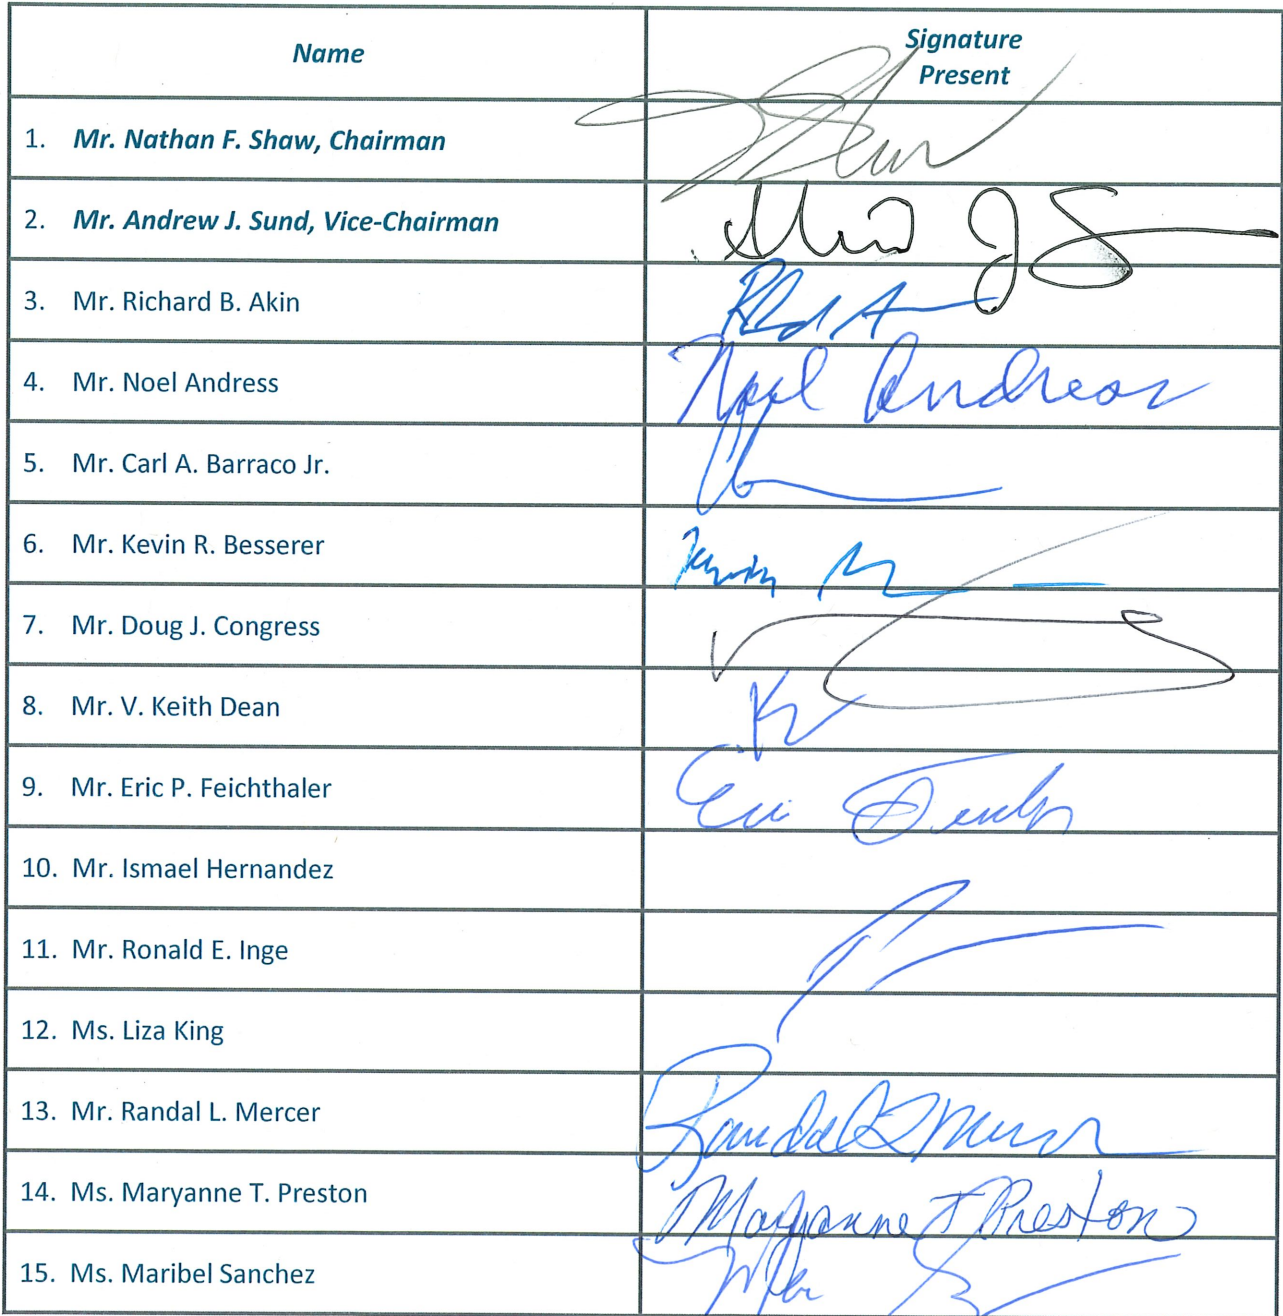 Name
Signature
Present
1. Mr. Nathan F. Shaw, Chairman
2. Mr. Andrew J. Sund, Vice-Chairman
3. Mr. Richard B. Akin
4. Mr. Noel Andress
Noel Andress
5. Mr. Carl A. Barraco Jr.
6. Mr. Kevin R. Besserer
7. Mr. Doug J. Congress
8. Mr. V. Keith Dean
9. Mr. Eric P. Feichthaler
10. Mr. Ismael Hernandez
11. Mr. Ronald E. Inge
12. Ms. Liza King
13. Mr. Randal L. Mercer
Randal L Mercer
14. Ms. Maryanne T. Preston
Maryanne T Preston
15. Ms. Maribel Sanchez